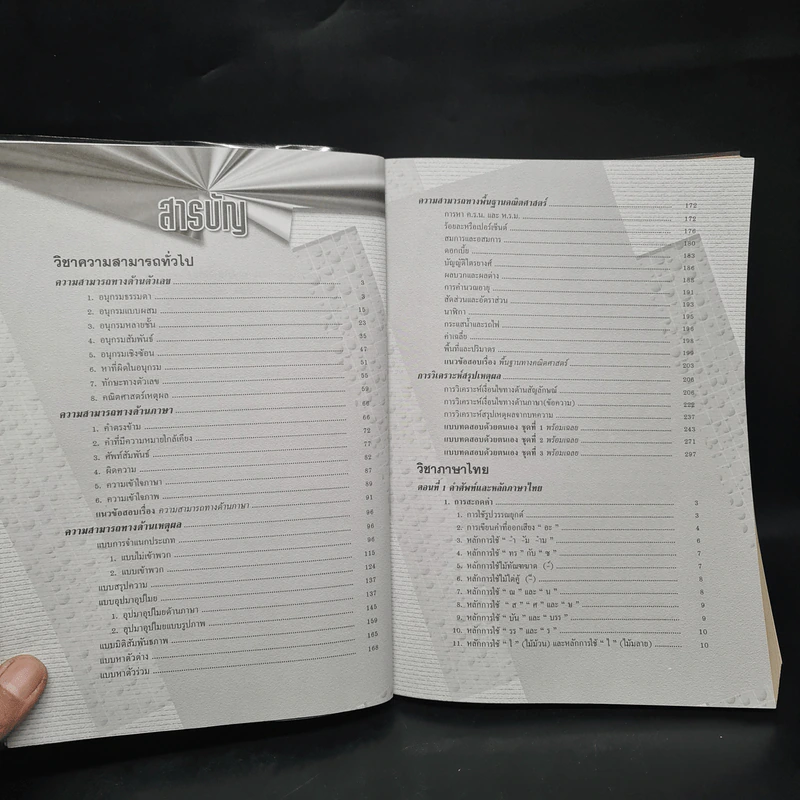 สารบัญ
วิชาความสามารถทั่วไป
ความสามารถทางด้านตัวเลข 3
1. อนุกรมธรรมดา 3
2. อนุกรมแบบผสม 15
3. อนุกรมหลายชั้น 23
4. อนุกรมสัมพันธ์ 35
5. อนุกรมเชิงซ้อน 47
6. หาที่ผิดในอนุกรม 51
7. ทักษะทางตัวเลข 55
8. คณิตศาสตร์เหตุผล 59
ความสามารถทางด้านภาษา 66
1. คำตรงข้าม 66
2. คำที่มีความหมายใกล้เคียง 72
3. ศัพท์สัมพันธ์ 77
4. ผิดความ 82
5. ความเข้าใจภาษา 87
6. ความเข้าใจภาพ 89
แนวข้อสอบเรื่อง ความสามารถทางด้านภาษา 91
ความสามารถทางด้านเหตุผล 96
แบบการจำแนกประเภท 96
1. แบบไม่เข้าพวก 115
2. แบบเข้าพวก 124
แบบสรุปความ 137
แบบอุปมาอุปไมย 137
1. อุปมาอุปไมยด้านภาษา 145
2. อุปมาอุปไมยแบบรูปภาพ 159
แบบมิติสัมพันธภาพ 165
แบบหาตัวต่าง 168
แบบหาตัวร่วม
ความสามารถทางพื้นฐานคณิตศาสตร์ 172
การหา ค.ร.น. และ ห.ร.ม. 172
ร้อยละหรือเปอร์เซ็นต์ 176
สมการและอสมการ 180
ดอกเบี้ย 183
บัญญัติไตรยางศ์ 186
ผลบวกและผลต่าง 188
การคำนวณอายุ 191
สัดส่วนและอัตราส่วน 193
นาฬิกา 194
กระแสน้ำและรถไฟ 194
ค่าเฉลี่ย 196
พื้นที่และปริมาตร 199
แนวข้อสอบเรื่อง พื้นฐานทางคณิตศาสตร์ 203
การวิเคราะห์สรุปเหตุผล 206
การวิเคราะห์เงื่อนไขทางด้านสัญลักษณ์ 206
การวิเคราะห์เงื่อนไขทางด้านภาษา(ข้อความ) 222
การวิเคราะห์สรุปเหตุผลจากบทความ 237
แบบทดสอบด้วยตนเอง ชุดที่ 1 พร้อมเฉลย 243
แบบทดสอบด้วยตนเอง ชุดที่ 2 พร้อมเฉลย 271
แบบทดสอบด้วยตนเอง ชุดที่ 3 พร้อมเฉลย 297
วิชาภาษาไทย
ตอนที่ 1 คำศัพท์และหลักภาษาไทย
1. การสะกดคำ 3
1. การใช้รูปวรรณยุกต์ 3
2. การเขียนคำที่ออกเสียง " อะ " 4
3. หลักการใช้ " ำ ัม าม " 6
4. หลักการใช้ " ทร " กับ " ซ " 7
5. หลักการใช้ไม้ทัณฑฆาต (-์) 7
6. หลักการใช้ไม้ไต่คู้ (-็) 8
7. หลักการใช้ " ณ " และ " น " 8
8. หลักการใช้ " ส " " ศ " และ " ษ " 9
9. หลักการใช้ " บัน " และ " บรร " 9
10. หลักการใช้ " รร " และ " ร " 10
11. หลักการใช้ " ใ " (ไม้ม้วน) และหลักการใช้ " ไ " (ไม้มลาย) 10